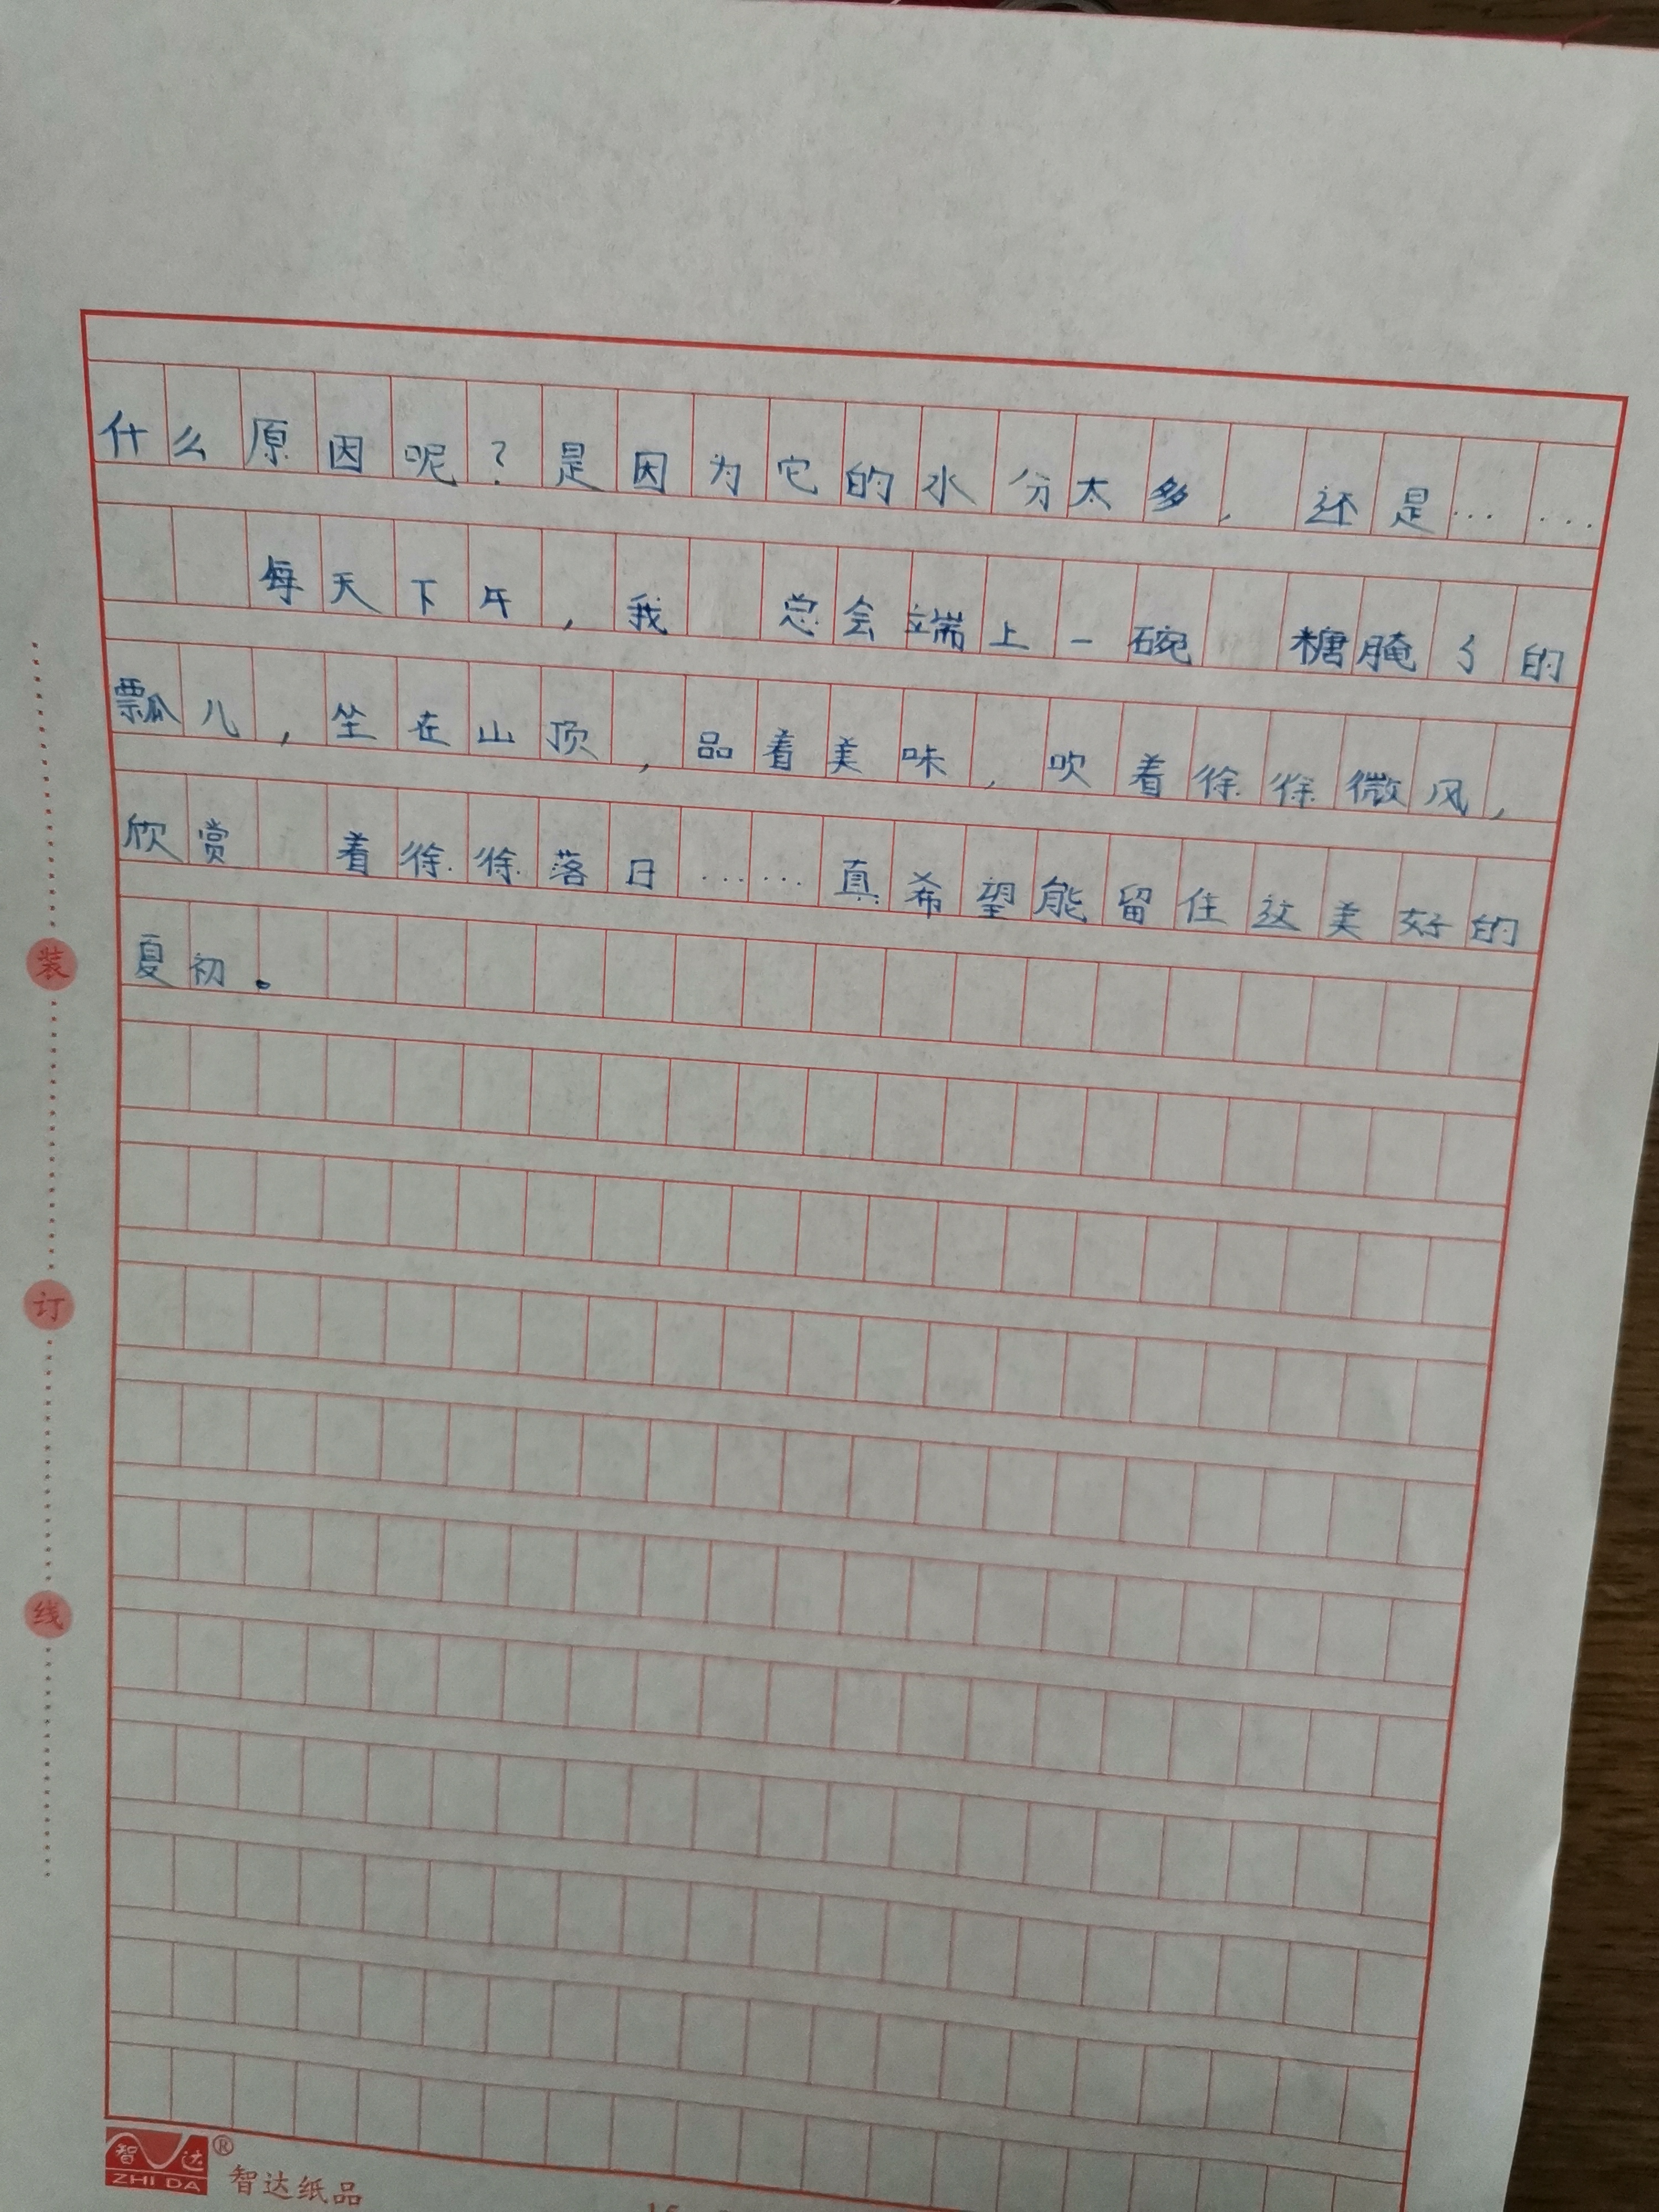 什么原因呢？是因为它的水分太多，还是……
每天下午，我总会端上一碗糖腌了的
瓢儿，坐在山顶，品着美味，吹着徐徐微风，
欣赏着徐徐落日……真希望能留住这美好的
夏初。
装
订
线
智达®
ZHI DA
智达纸品